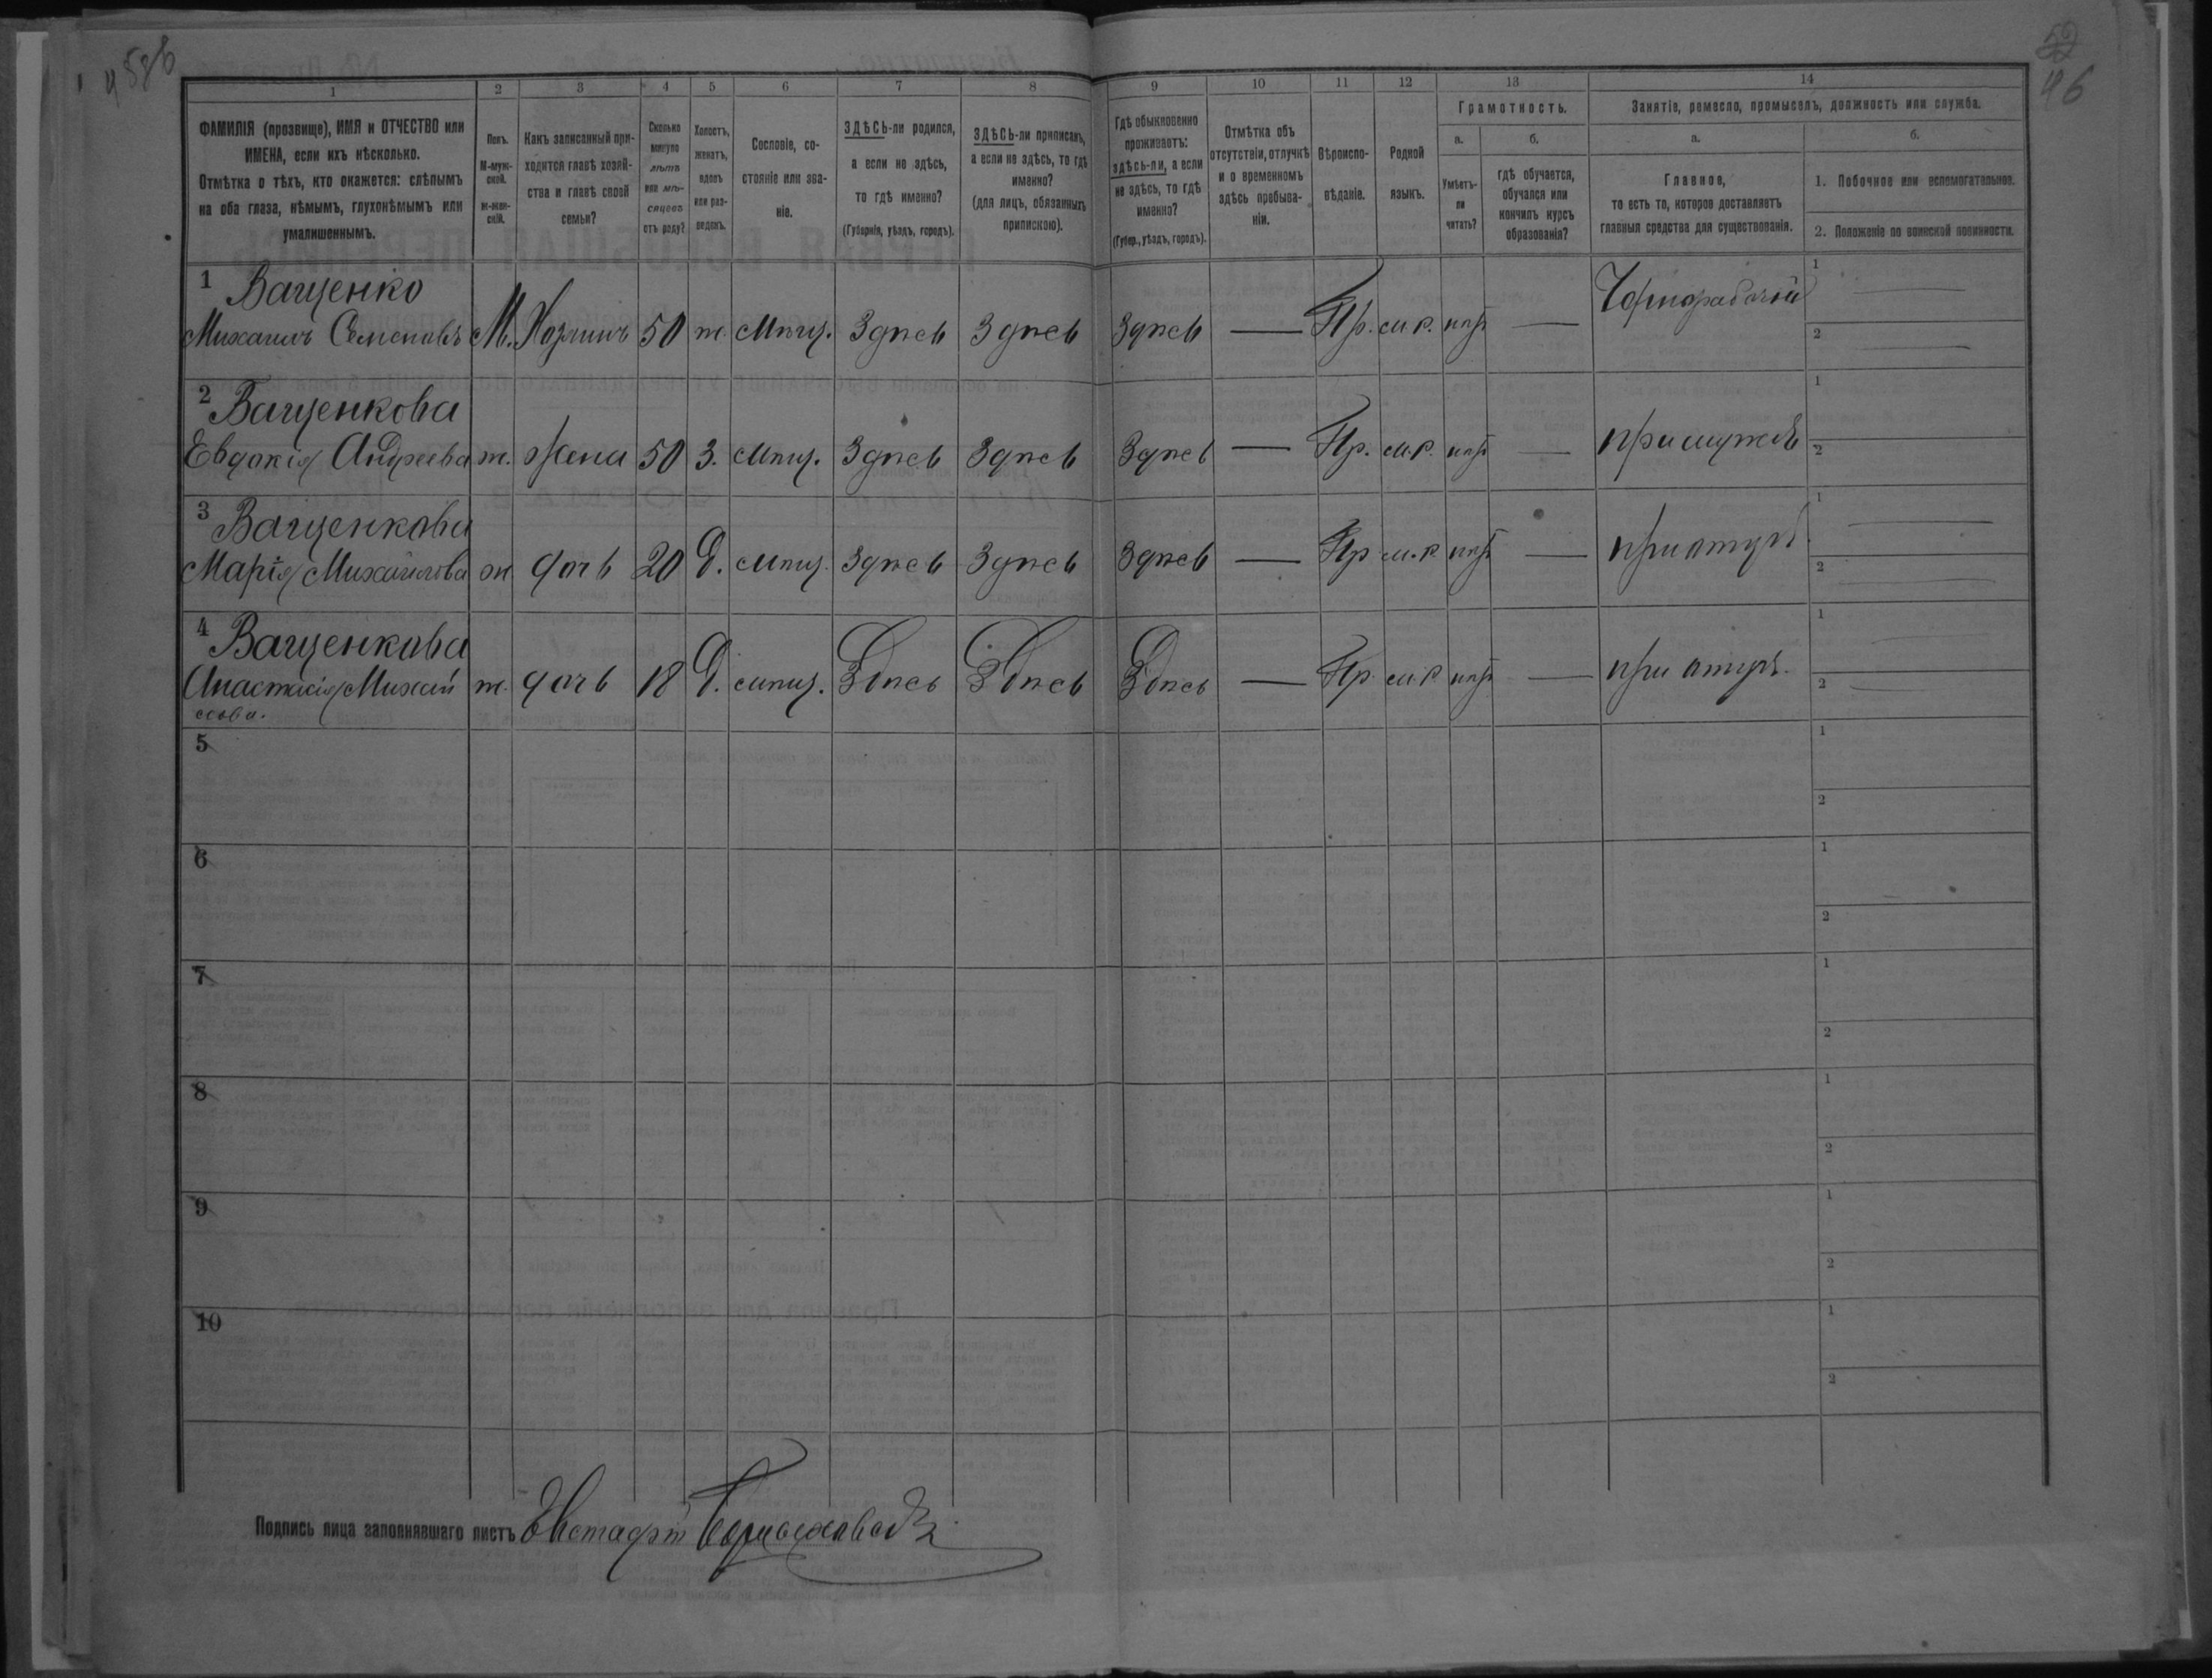 52
46
1 2 3 4 5 6 7 8 9 10 11 12 13 14
ФАМИЛІЯ (прозвище), ИМЯ и ОТЧЕСТВО или
ИМЕНА, если ихъ нѣсколько.
Отмѣтка о тѣхъ, кто окажется: слѣпымъ
на оба глаза, нѣмымъ, глухонѣмымъ или
умалишеннымъ.
Полъ.
М-муж-
ской.
ж-жен-
скій.
Какъ записанный при-
ходится главѣ хозяй-
ства и главѣ своей
семьи?
Сколько
минуло
лѣтъ
или мѣ-
сяцевъ
отъ роду?
Холостъ,
женатъ,
вдовъ
или раз-
веденъ.
Сословіе, со-
стояніе или зва-
ніе.
ЗДѢСЬ-ли родился,
а если не здѣсь,
то гдѣ именно?
(Губернія, уѣздъ, городъ).
ЗДѢСЬ-ли приписанъ,
а если не здѣсь, то гдѣ
именно?
(для лицъ, обязанныхъ
припискою).
Гдѣ обыкновенно
проживаетъ:
здѣсь-ли, а если
не здѣсь, то гдѣ
именно?
(Губер., уѣздъ, городъ).
Отмѣтка объ
отсутствіи, отлучкѣ
и о временномъ
здѣсь пребыва-
ніи.
Вѣроиспо-
вѣданіе.
Родной
языкъ.
Грамотность.
а.
Умѣетъ-
ли
читать?
б.
гдѣ обучается,
обучался или
кончилъ курсъ
образованія?
Занятіе, ремесло, промыселъ, должность или служба.
а.
Главное,
то есть то, которое доставляетъ
главныя средства для существованія.
б.
1. Побочное или вспомогательное.
2. Положеніе по воинской повинности.
1 Ващенко
Михаилъ Семеновъ М. Хозяинъ 50 ж. мѣщ. Здѣсь Здѣсь Здѣсь — Пр. м.р. нѣтъ — Чернорабочій 1 — 2 —
2 Ващенкова
Евдокія Андреева ж. жена 50 З. мѣщ. Здѣсь Здѣсь Здѣсь — Пр. м.р. нѣтъ — при мужѣ 1 2
3 Ващенкова
Марія Михайлова ж дочь 20 Д. мѣщ. Здѣсь Здѣсь Здѣсь — Пр м.р нѣтъ — при отцѣ 1 — 2 —
4 Ващенкова
Анастасія Михай ж. дочь 18 Д. мѣщ. Здѣсь Здѣсь Здѣсь — Пр. м.р нѣтъ — при отцѣ. 1 — 2 —
лова.
5 1 2
6 1 2
7 1 2
8 1 2
9 1 2
10 1 2
Подпись лица заполнявшаго листъ